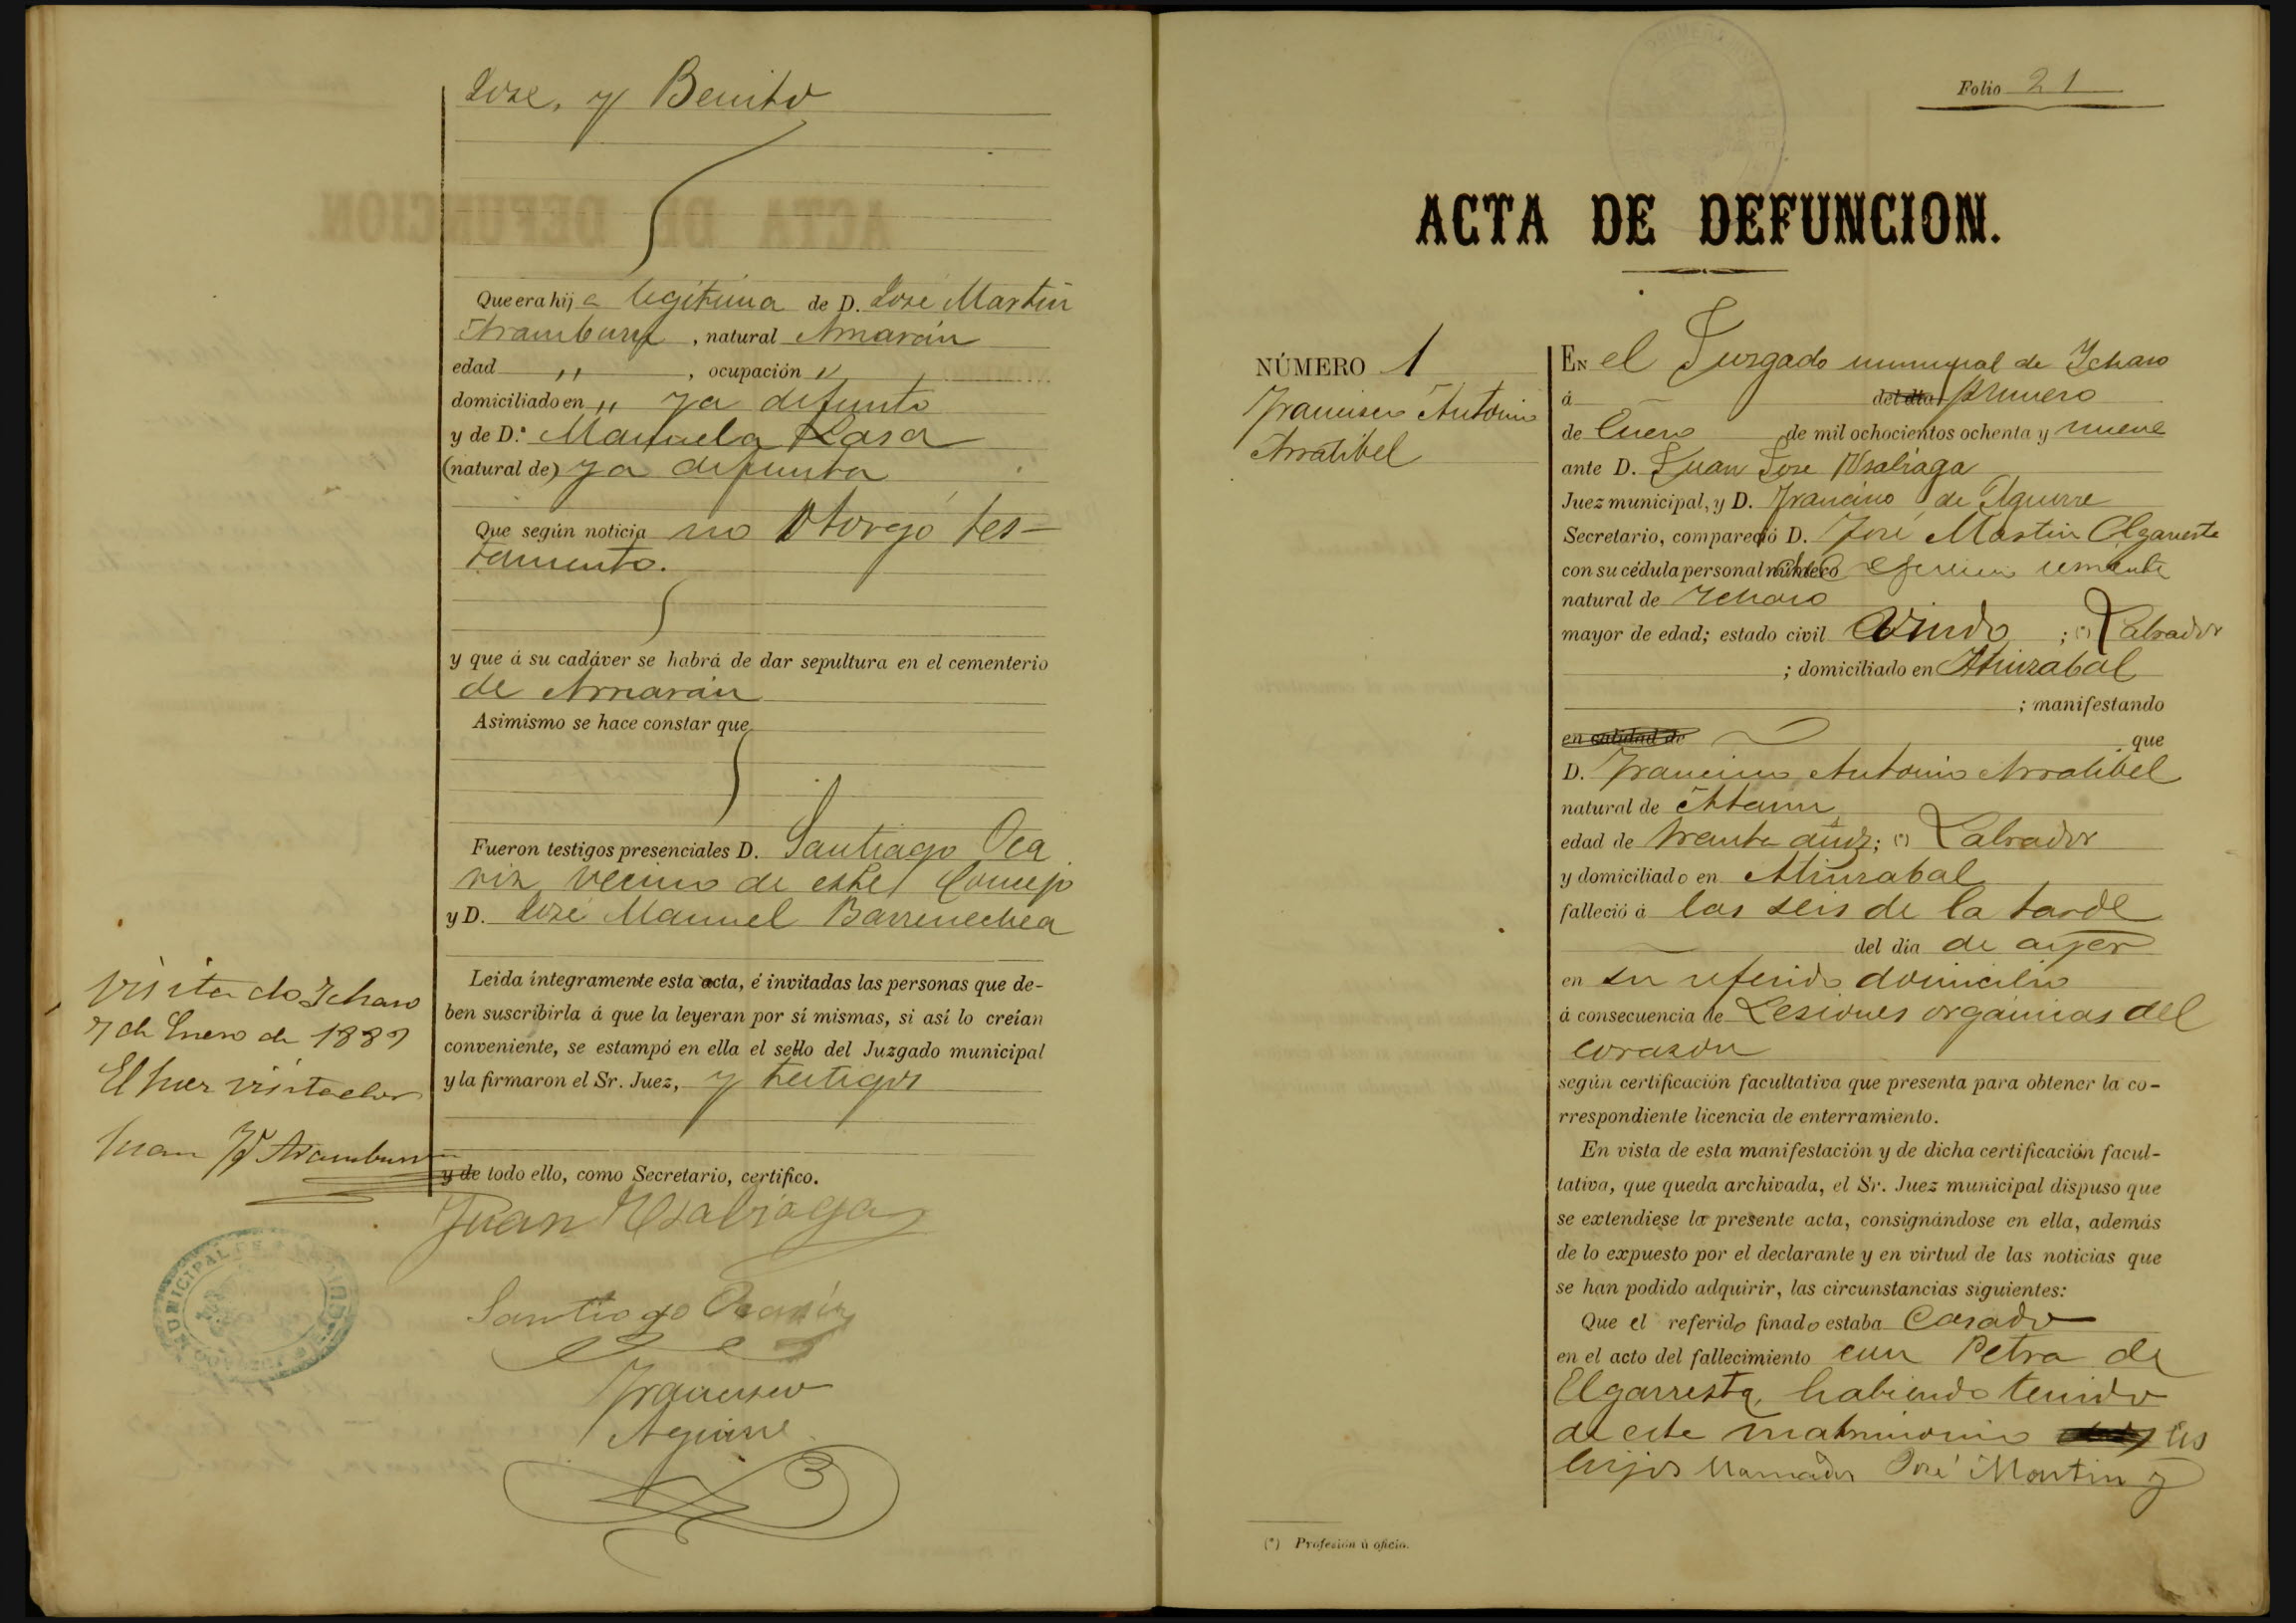 José, y Benito
Que era hija legitima de D. José Martin
Aramburu, natural Amarán
edad „ , ocupación „
domiciliado en „ ya difunto
y de D.ª Manuela Lasa
(natural de) ya difunta
Que según noticia no otorgó tes-
tamento.
y que á su cadáver se habrá de dar sepultura en el cementerio
de Amarán
Asimismo se hace constar que
Fueron testigos presenciales D. Santiago Oca
riz, vecino de este Concejo
y D. José Manuel Barrenechea
Leida íntegramente esta acta, é invitadas las personas que de-
ben suscribirla á que la leyeran por sí mismas, si así lo creían
conveniente, se estampó en ella el sello del Juzgado municipal
y la firmaron el Sr. Juez, y testigos
y de todo ello, como Secretario, certifico.
Juan Usabiaga
Santiago Ocariz
Francisco
Aguirre
Visita do Ichaso
7 de Enero de 1889
El Juez visitador
Juan Aramburu
Folio 21
ACTA DE DEFUNCION.
NÚMERO 1
Francisco Antonio
Arratibel
EN el Juzgado municipal de Ichaso
á del dia primero
de Enero de mil ochocientos ochenta y nueve
ante D. Juan José Usabiaga
Juez municipal, y D. Francisco de Aguirre
Secretario, compareció D. José Martin Elgarresta
con su cédula personal número
natural de Ichaso
mayor de edad; estado civil Viudo ; (*) Labrador
; domiciliado en Atiuzabal
; manifestando
en calidad de que
D. Francisco Antonio Arratibel
natural de Ataun
edad de treinta años; (*) Labrador
y domiciliado en Atiuzabal
falleció á las seis de la tarde
del dia de ayer
en su referido domicilio
á consecuencia de Lesiones orgánicas del
corazon
según certificación facultativa que presenta para obtener la co-
rrespondiente licencia de enterramiento.
En vista de esta manifestación y de dicha certificación facul-
tativa, que queda archivada, el Sr. Juez municipal dispuso que
se extendiese la presente acta, consignándose en ella, además
de lo expuesto por el declarante y en virtud de las noticias que
se han podido adquirir, las circunstancias siguientes:
Que el referido finado estaba Casado
en el acto del fallecimiento con Petra de
Elgarresta, habiendo tenido
de este matrimonio tres
hijos llamados José Martin y
(*) Profesión ú oficio.